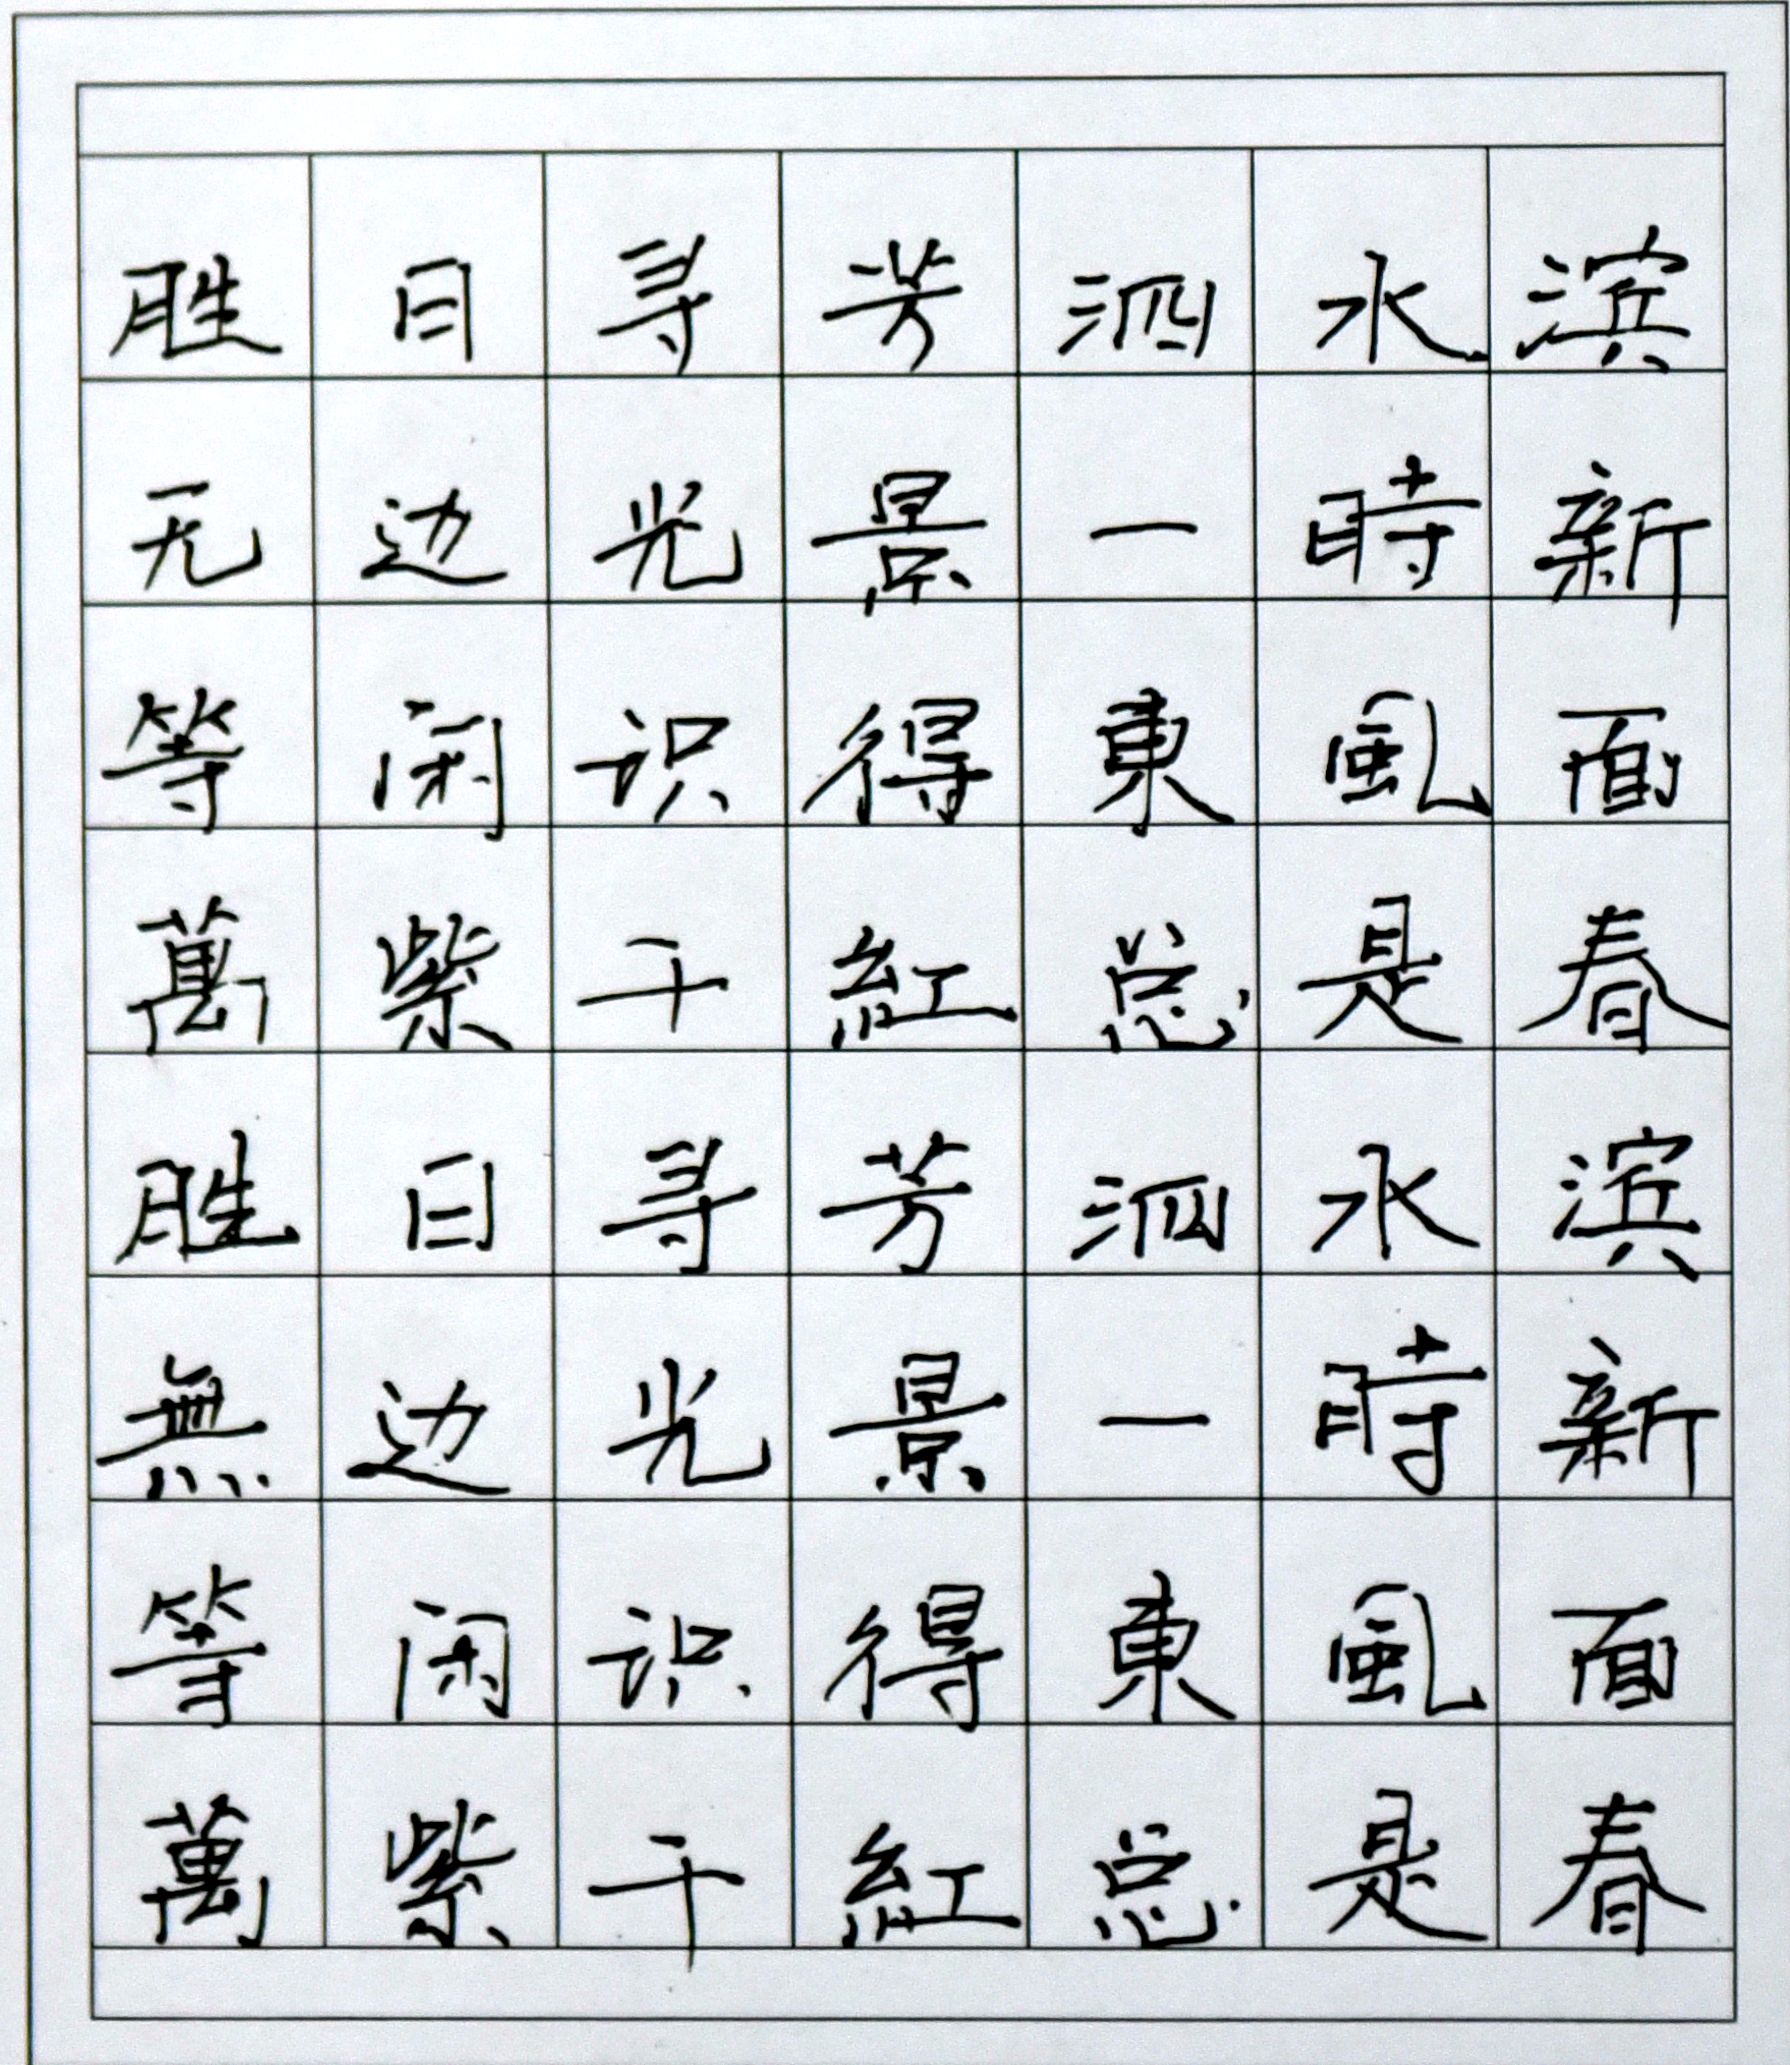 胜日寻芳泗水滨
无边光景一時新
等闲识得東風面
萬紫千紅总是春
胜日寻芳泗水滨
無边光景一時新
等闲识得東風面
萬紫千紅总是春